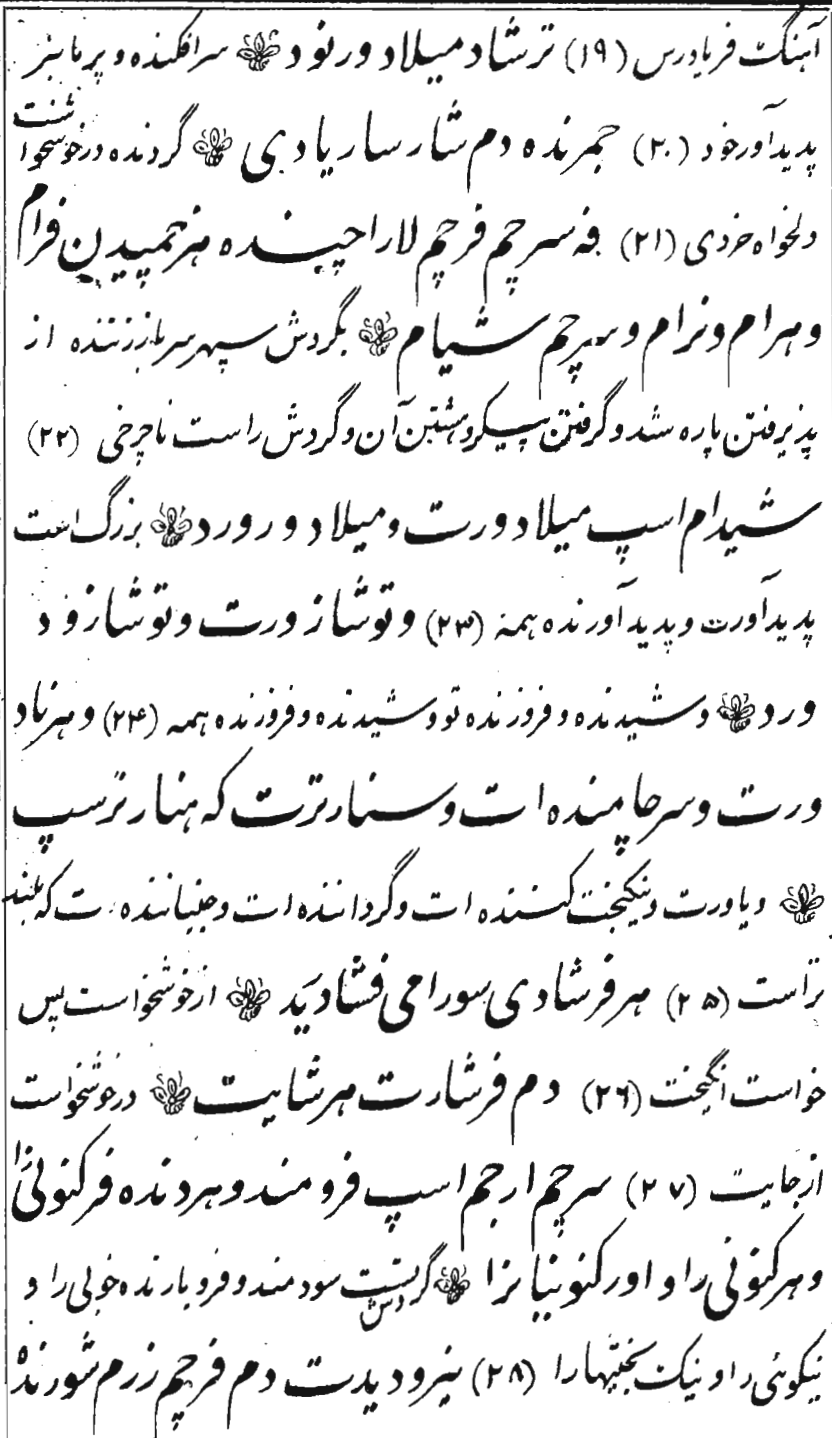 آهنگ فریادرس (۱۹) ترشاد میلاد ورنود سرافکنده و پرمانبر
پدیدآور خود (۲۰) جمرنده دم شارسار یادبی گردنده در خوشخواست
دلخواه خردی (۲۱) فه سرچم فرچم لاراچینده هنرچمپیدن فرام
و هرام و نرام و سرچم شیام بگردش سپهر سرباززننده از
پذیرفتن پاره شد و گرفتن پیکر و هشتن آن و گردش راست ناچرخی (۲۲)
شیدام اسپ میلادورت و میلاد ورورد بزرگ است
پدیدآورت و پدیدآورنده همه (۲۳) و توشاز ورت و توشاز ود
ورد و شیدنده و فروزنده تو و شیدنده و فروزنده همه (۲۴) و هرناد
ورت و سرچامنده ات و سنارترت که هنار ترسپ
و یاورت و نیکبخت کننده ات و گرداننده ات و جنباننده ات که بلند
تراست (۲۵) هر فرشادی سورامی فشادید از خوشخواست پس
خواست انگیخت (۲۶) دم فرشارت هرشایت در خوشخواست
ازجایت (۲۷) سرچم ارجم اسپ فرومند و هردنده فرکنوئی را
و هرکنوئی را و اورکنونیا نرا گردشت سودمند و فروبارنده خوبی را و
نیکوئی را و نیک بختیها را (۲۸) نیرودیدت دم فرچم زرم شورنده